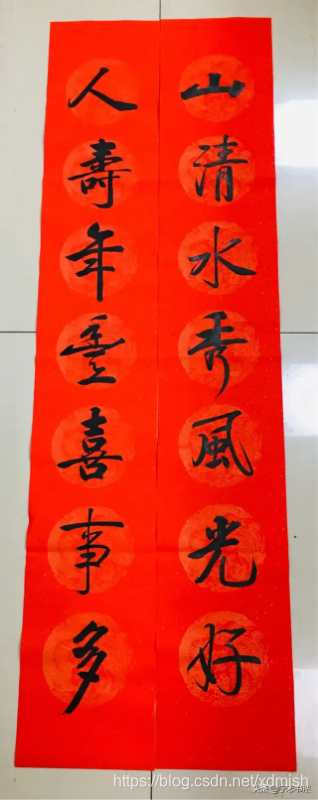 山清水秀風光好
人壽年豊喜事多
https://blog.csdn.net/xdmjsh